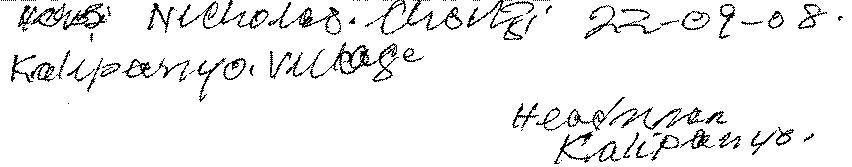 Nicholas. 22-09-08.
Kalipanyo. Village
Headman
Kalipanyo.